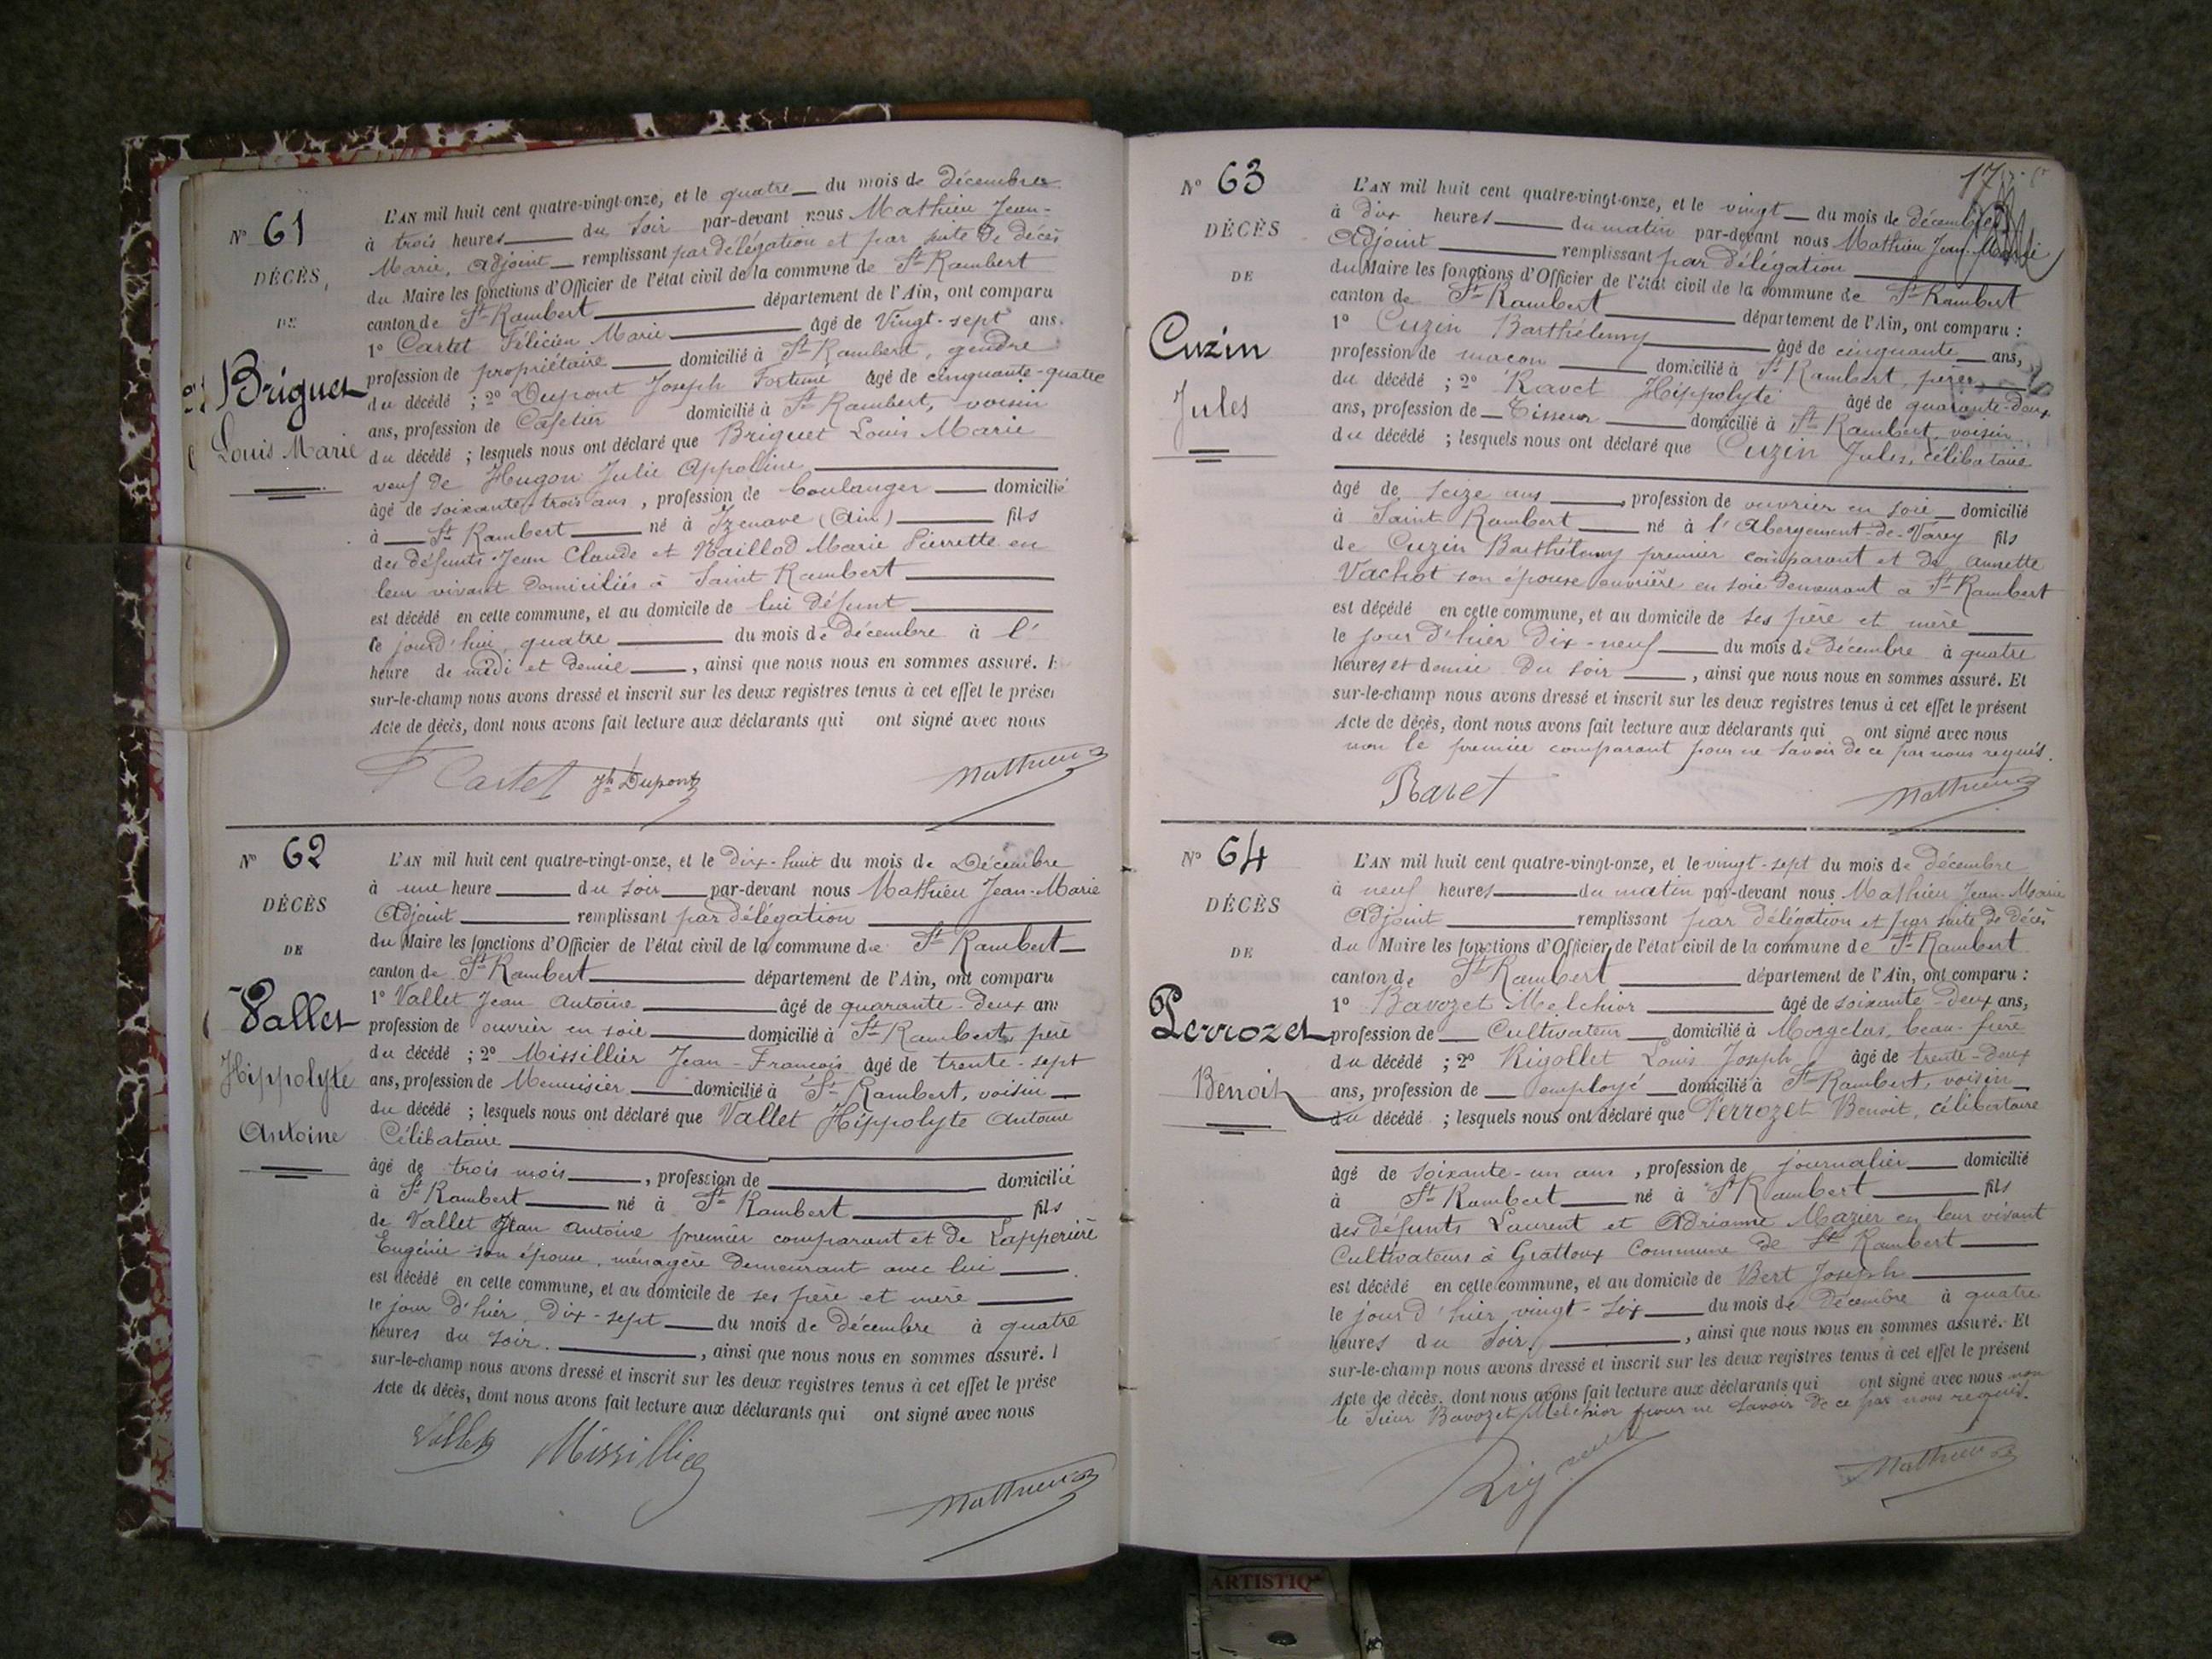 N° 61
DÉCÈS,
DE
Briguet
Louis Marie
L'AN mil huit cent quatre-vingt-onze, et le quatre du mois de décembre
à trois heures du soir par-devant nous Mathieu Jean-
Marie, Adjoint remplissant par délégation et par suite de décès
du Maire les fonctions d'Officier de l'état civil de la commune de St Rambert
canton de St Rambert département de l'Ain, ont comparu
1° Cartet Félicien Marie âgé de Vingt-sept ans.
profession de propriétaire domicilié à St Rambert, gendre
du décédé ; 2° Dupont Joseph Fortuné âgé de cinquante-quatre
ans, profession de Cafetier domicilié à St Rambert, voisin
du décédé ; lesquels nous ont déclaré que Briguet Louis Marie
veuf de Hugon Julie Appoline
âgé de soixante-trois ans, profession de boulanger domicilié
à St Rambert né à Izenave (Ain) fils
des défunts Jean Claude et Maillod Marie Pierrette en
leur vivant domiciliés à Saint Rambert
est décédé en cette commune, et au domicile de lui défunt
ce jourd'hui quatre du mois de décembre à l'
heure de midi et demie, ainsi que nous nous en sommes assuré.
sur-le-champ nous avons dressé et inscrit sur les deux registres tenus à cet effet le présen
Acte de décès, dont nous avons fait lecture aux déclarants qui ont signé avec nous
F Cartet Jh Dupont Mathieu
N° 62
DÉCÈS
DE
Vallet
Hippolyte
Antoine
L'AN mil huit cent quatre-vingt-onze, et le dix-huit du mois de Décembre
à une heure du soir par-devant nous Mathieu Jean-Marie
Adjoint remplissant par délégation
du Maire les fonctions d'Officier de l'état civil de la commune de St Rambert
canton de St Rambert département de l'Ain, ont comparu
1° Vallet Jean Antoine âgé de quarante-deux ans
profession de ouvrier en soie domicilié à St Rambert, père
du décédé ; 2° Missillier Jean-François âgé de trente-sept
ans, profession de Menuisier domicilié à St Rambert, voisin
du décédé ; lesquels nous ont déclaré que Vallet Hippolyte Antoine
Célibataire
âgé de trois mois, profession de domicilié
à St Rambert né à St Rambert fils
de Vallet Jean Antoine premier comparant et de Lapperière
Eugénie son épouse, ménagère demeurant avec lui
est décédé en cette commune, et au domicile de ses père et mère
le jour d'hier dix-sept du mois de décembre à quatre
heures du soir., ainsi que nous nous en sommes assuré.
sur-le-champ nous avons dressé et inscrit sur les deux registres tenus à cet effet le prése
Acte de décès, dont nous avons fait lecture aux déclarants qui ont signé avec nous
Vallet Missillier Mathieu
17
N° 63
DÉCÈS
DE
Cuzin
Jules
L'AN mil huit cent quatre-vingt-onze, et le vingt du mois de décembre
à dix heures du matin par-devant nous Mathieu Jean-Marie
Adjoint remplissant par délégation
du Maire les fonctions d'Officier de l'état civil de la commune de St Rambert
canton de St Rambert département de l'Ain, ont comparu :
1° Cuzin Barthélemy âgé de cinquante ans,
profession de maçon domicilié à St Rambert, père
du décédé ; 2° Ravet Hippolyte âgé de quarante-deux
ans, profession de Tisseur domicilié à St Rambert, voisin
du décédé ; lesquels nous ont déclaré que Cuzin Jules, célibataire
âgé de seize ans, profession de ouvrier en soie domicilié
à Saint Rambert né à l'Abergement-de-Varey fils
de Cuzin Barthélemy premier comparant et de Annette
Vachot son épouse ouvrière en soie demeurant à St Rambert
est décédé en cette commune, et au domicile de ses père et mère
le jour d'hier dix-neuf du mois de décembre à quatre
heures et demie du soir, ainsi que nous nous en sommes assuré. Et
sur-le-champ nous avons dressé et inscrit sur les deux registres tenus à cet effet le présent
Acte de décès, dont nous avons fait lecture aux déclarants qui ont signé avec nous
non le premier comparant pour ne savoir de ce par nous requis.
Ravet Mathieu
N° 64
DÉCÈS
DE
Perrozet
Benoit
L'AN mil huit cent quatre-vingt-onze, et le vingt-sept du mois de décembre
à neuf heures du matin par-devant nous Mathieu Jean-Marie
Adjoint remplissant par délégation et par suite de décès
du Maire les fonctions d'Officier de l'état civil de la commune de St Rambert
canton de St Rambert département de l'Ain, ont comparu :
1° Bavozet Melchior âgé de soixante-deux ans,
profession de Cultivateur domicilié à Morgelas, beau-frère
du décédé ; 2° Rigollet Louis Joseph âgé de trente-deux
ans, profession de employé domicilié à St Rambert, voisin
du décédé ; lesquels nous ont déclaré que Perrozet Benoit, célibataire
âgé de soixante-un ans, profession de journalier domicilié
à St Rambert né à St Rambert fils
des défunts Laurent et Adrianne Mazier en leur vivant
Cultivateurs à Grattoux Commune de St Rambert
est décédé en cette commune, et au domicile de Bert Joseph
le jour d'hier vingt-six du mois de Décembre à quatre
heures du soir, ainsi que nous nous en sommes assuré. Et
sur-le-champ nous avons dressé et inscrit sur les deux registres tenus à cet effet le présent
Acte de décès, dont nous avons fait lecture aux déclarants qui ont signé avec nous non
le sieur Bavozet Melchior pour ne savoir de ce par nous requis.
Mathieu
ARTISTIQ